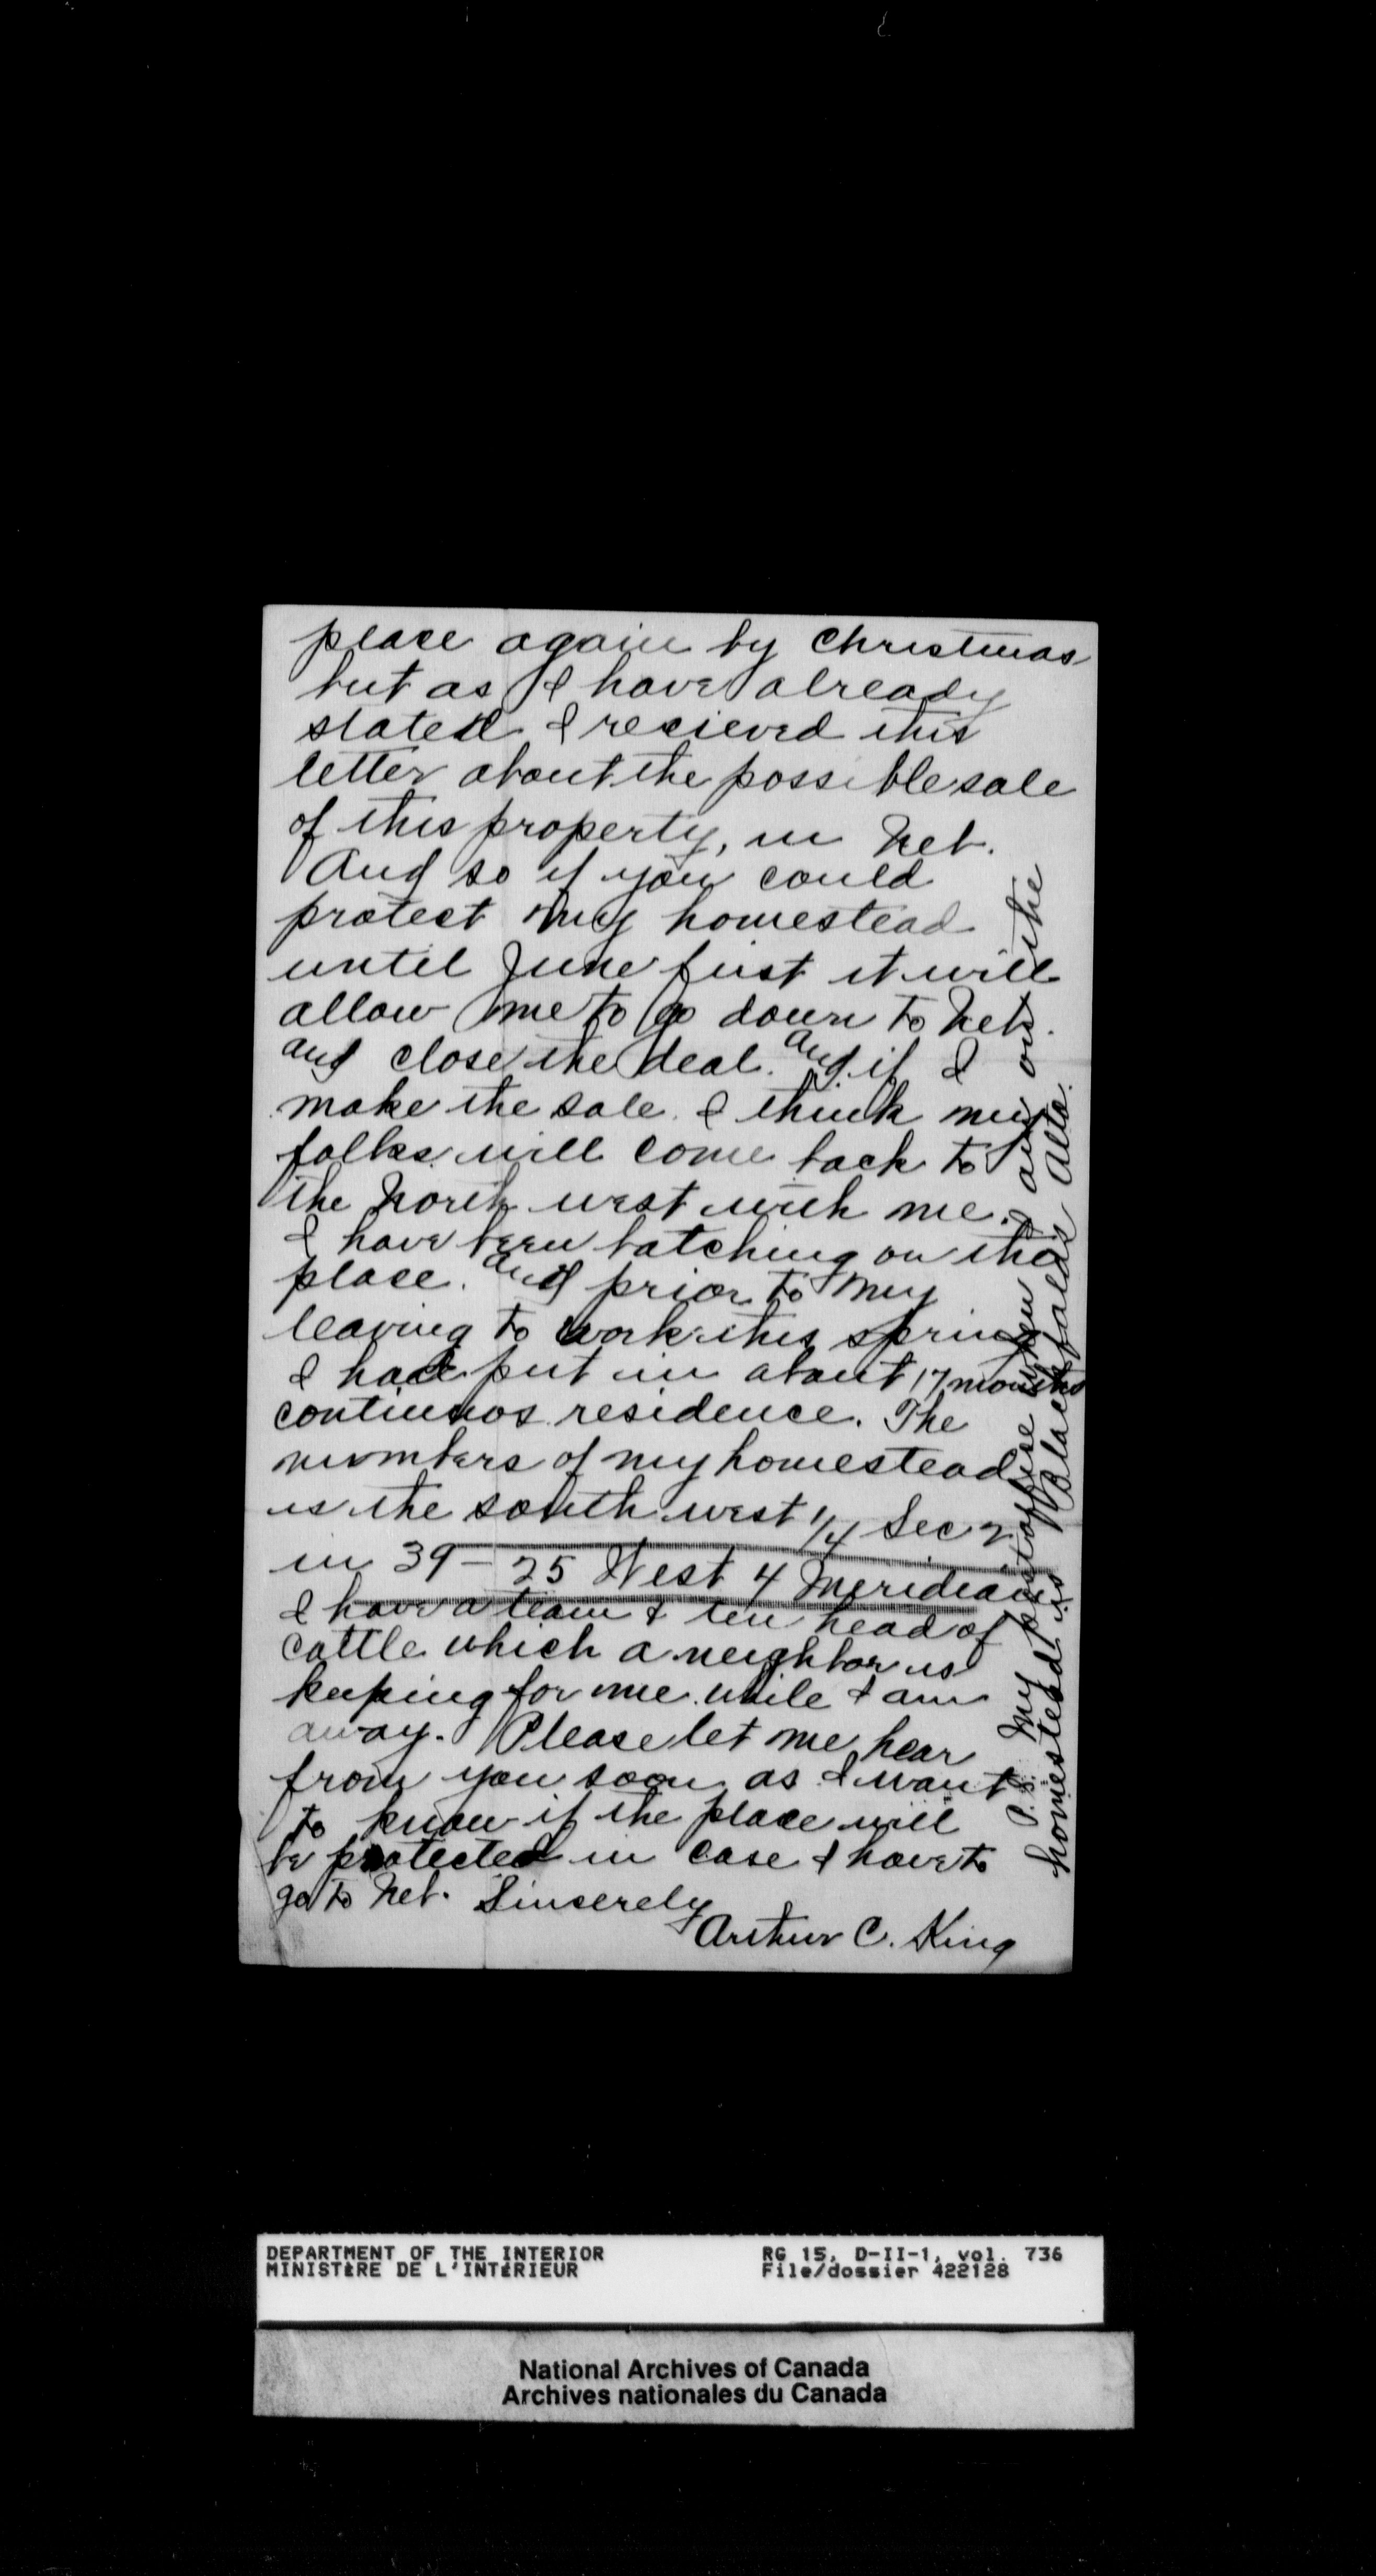 place again by Christmas
but as I have already
stated I recieved this
letter about the possible sale
of this property, in Neb.
And so if you could
protect my homestead
until June first it will
allow me to go down to Neb.
and close the deal. and if I
make the sale I think my
folks will come back to
the North west with me.
I have been batching on the
place. and prior to my
leaving to work this spring
I had put in about 17 months
continuos residence. The
numbers of my homestead
is the south west 1/4 Sec 2
in 39-25 West 4 Meridian
I have a team & ten head of
cattle which a neighbor is
keeping for me while I am
away. Please let me hear
from you soon as I want
to know if the place will
be protected in case I have to
go to Neb. Sincerely
Arthur C. King
P.S. My postoffice when I am on the
homestead is Blackfalds Alta.
DEPARTMENT OF THE INTERIOR RG 15, D-II-1, vol. 736
MINISTÈRE DE L'INTÉRIEUR File/dossier 422128
National Archives of Canada
Archives nationales du Canada